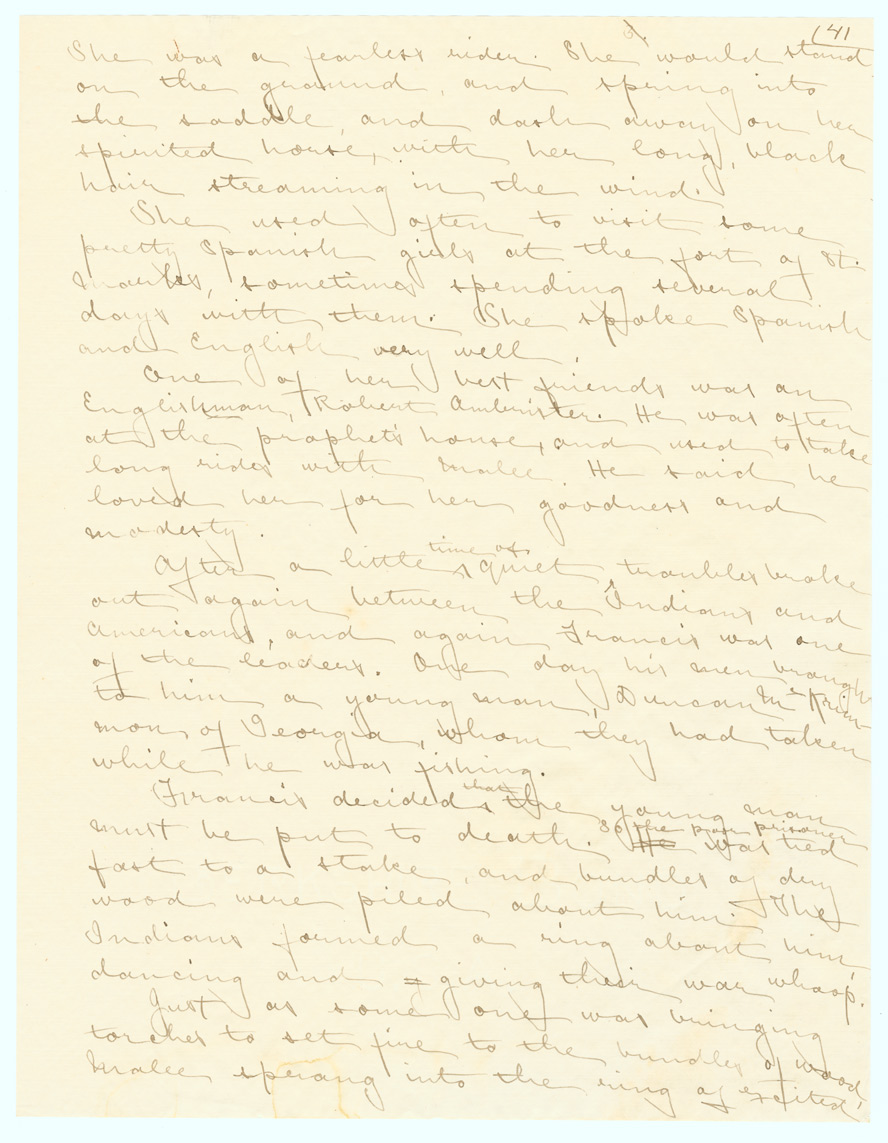 141
She was a fearless rider. She would stand
on the ground, and spring into
the saddle, and dash away on her
spirited horse, with her long, black
hair streaming in the wind.
She used often to visit some
pretty Spanish girls at the fort of St.
Marks, sometimes spending several
days with them. She spoke Spanish
and English very well.
One of her best friends was an
Englishman, Robert Ambrister. He was often
at the prophet's house, and used to take
long rides with Malee. He said he
loved her for her goodness and
modesty.
After a little time of quiet, troubles broke
out again between the Indians and
Americans, and again Francis was one
of the leaders. One day his men brought
to him a young man, Duncan McKrim-
mon, of Georgia, whom they had taken
while he was fishing.
Francis decided that the young man
must be put to death. So the poor prisoner
He was tied
fast to a stake, and bundles of dry
wood were piled about him. The
Indians formed a ring about him,
dancing and giving their war whoop.
Just as some one was bringing
torches to set fire to the bundles of wood,
Malee sprang into the ring of excited